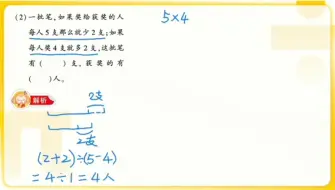 (2)一批笔,如果奖给获奖的人
每人5支那么就少2支;如果
每人奖4支就多2支,这批笔
有(    )支,获奖的有
(    )人。
5×4
解析
2支
2支
(2+2)÷(5-4)
=4÷1=4人